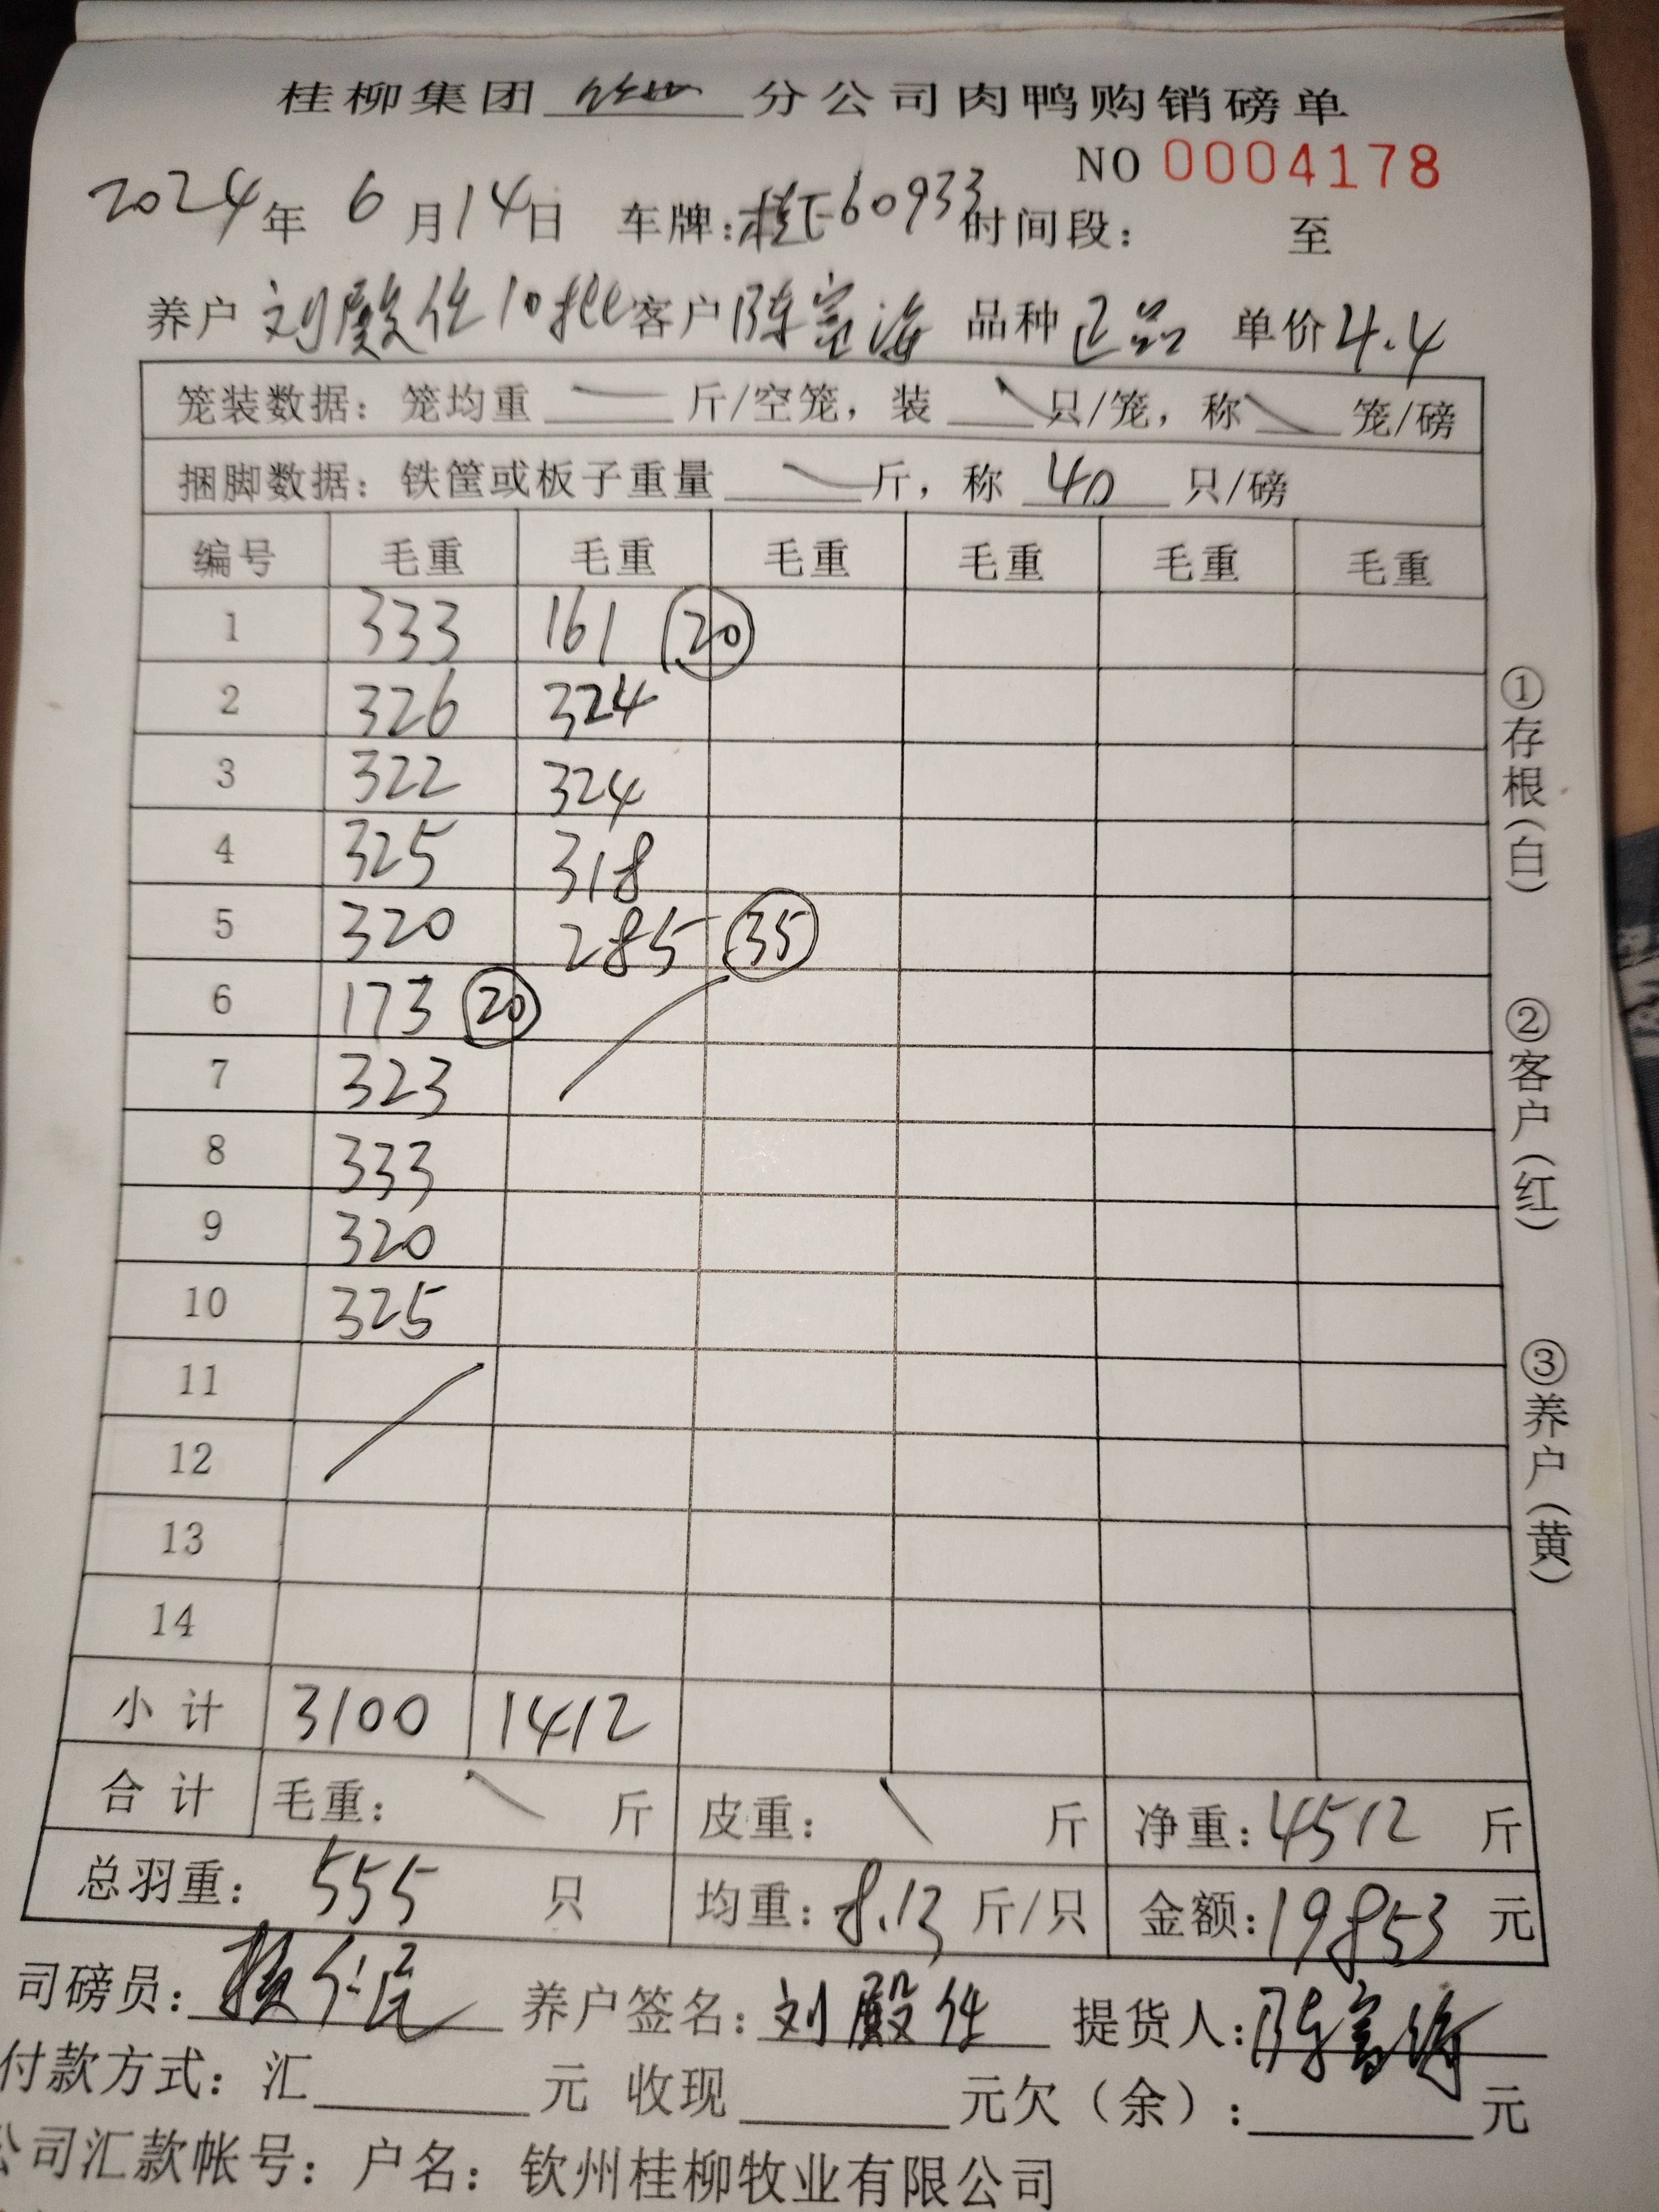 桂柳集团 分公司肉鸭购销磅单
NO 0004178
2024年 6月14日 车牌:桂E60933 时间段: 至
养户 刘殿任10批 客户 陈富海 品种 正品 单价4.4
笼装数据: 笼均重 斤/空笼, 装 只/笼, 称 笼/磅
捆脚数据: 铁筐或板子重量 斤, 称 40 只/磅
编号 毛重 毛重 毛重 毛重 毛重 毛重
1 333 161 20
2 326 324
3 322 324
4 325 318
5 320 285 35
6 173 20
7 323
8 333
9 320
10 325
11
12
13
14
小计 3100 1412
合计 毛重: 斤 皮重: 斤 净重:4512 斤
总羽重: 555 只 均重:8.13 斤/只 金额:19853 元
司磅员: 养户签名:刘殿任 提货人:陈富海
付款方式: 汇 元 收现 元欠(余): 元
公司汇款帐号: 户名: 钦州桂柳牧业有限公司
①存根(白)
②客户(红)
③养户(黄)